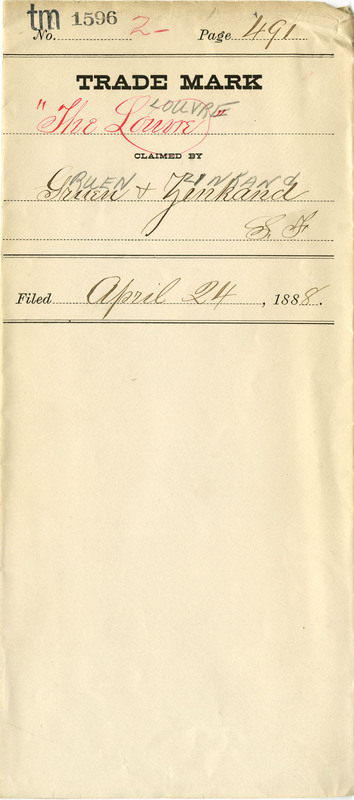 tm 1596
No. 2- Page 491
TRADE MARK
LOUVRE
"The Louvre"
CLAIMED BY
RUEN ZINKAND
Gruen & Zinkand
S. F
Filed April 24, 1888.